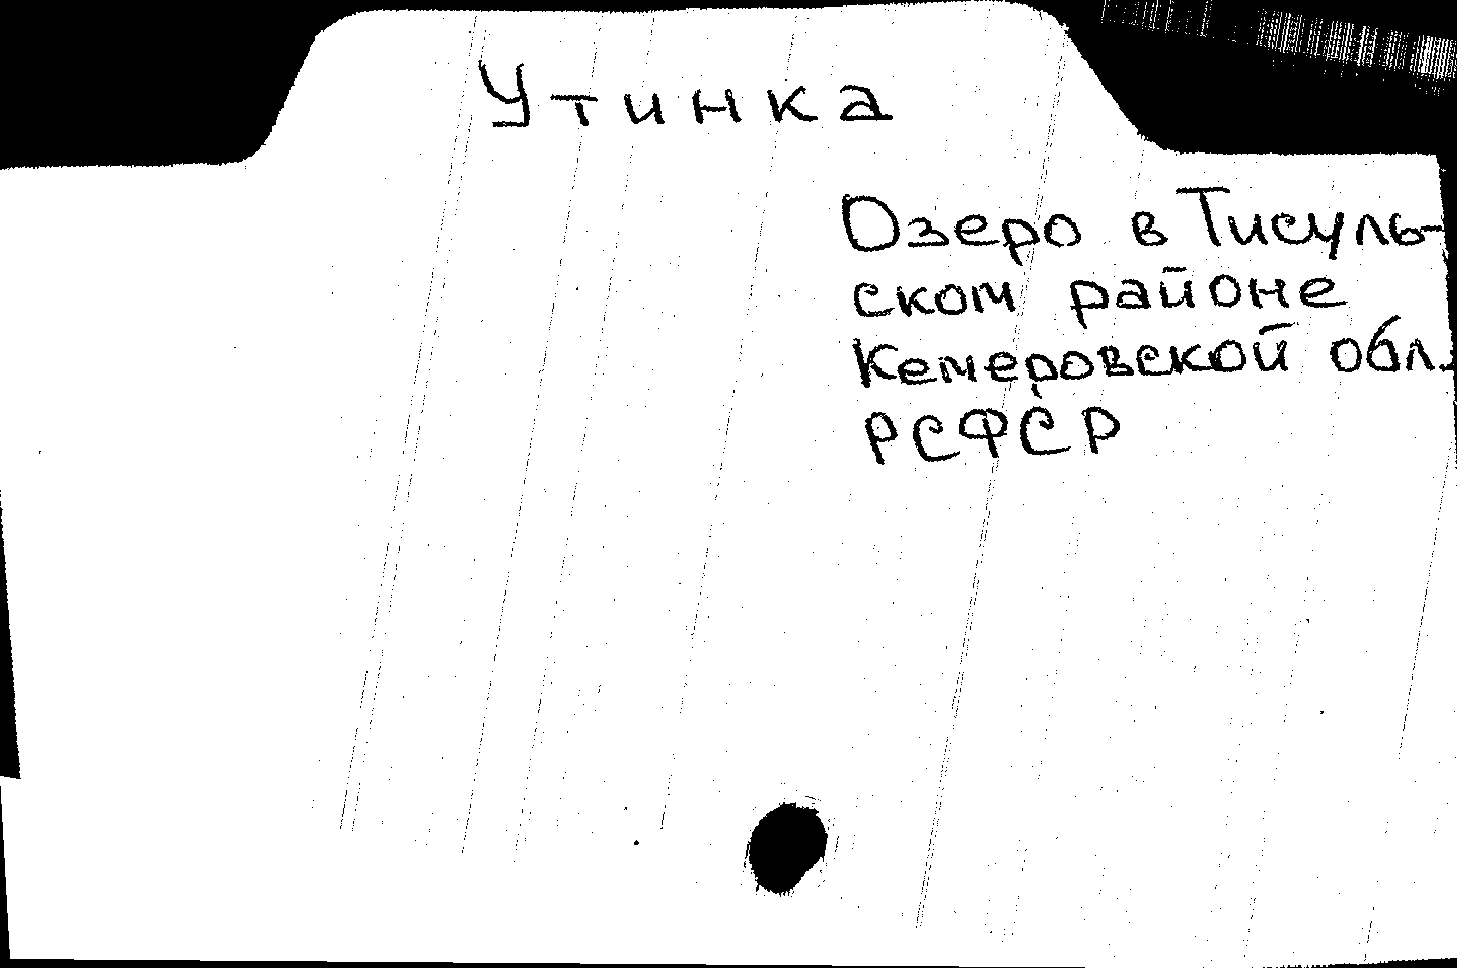 Утинка
Озеро в Тисуль-
ском районе
Кемеровской обл.
РСФСР